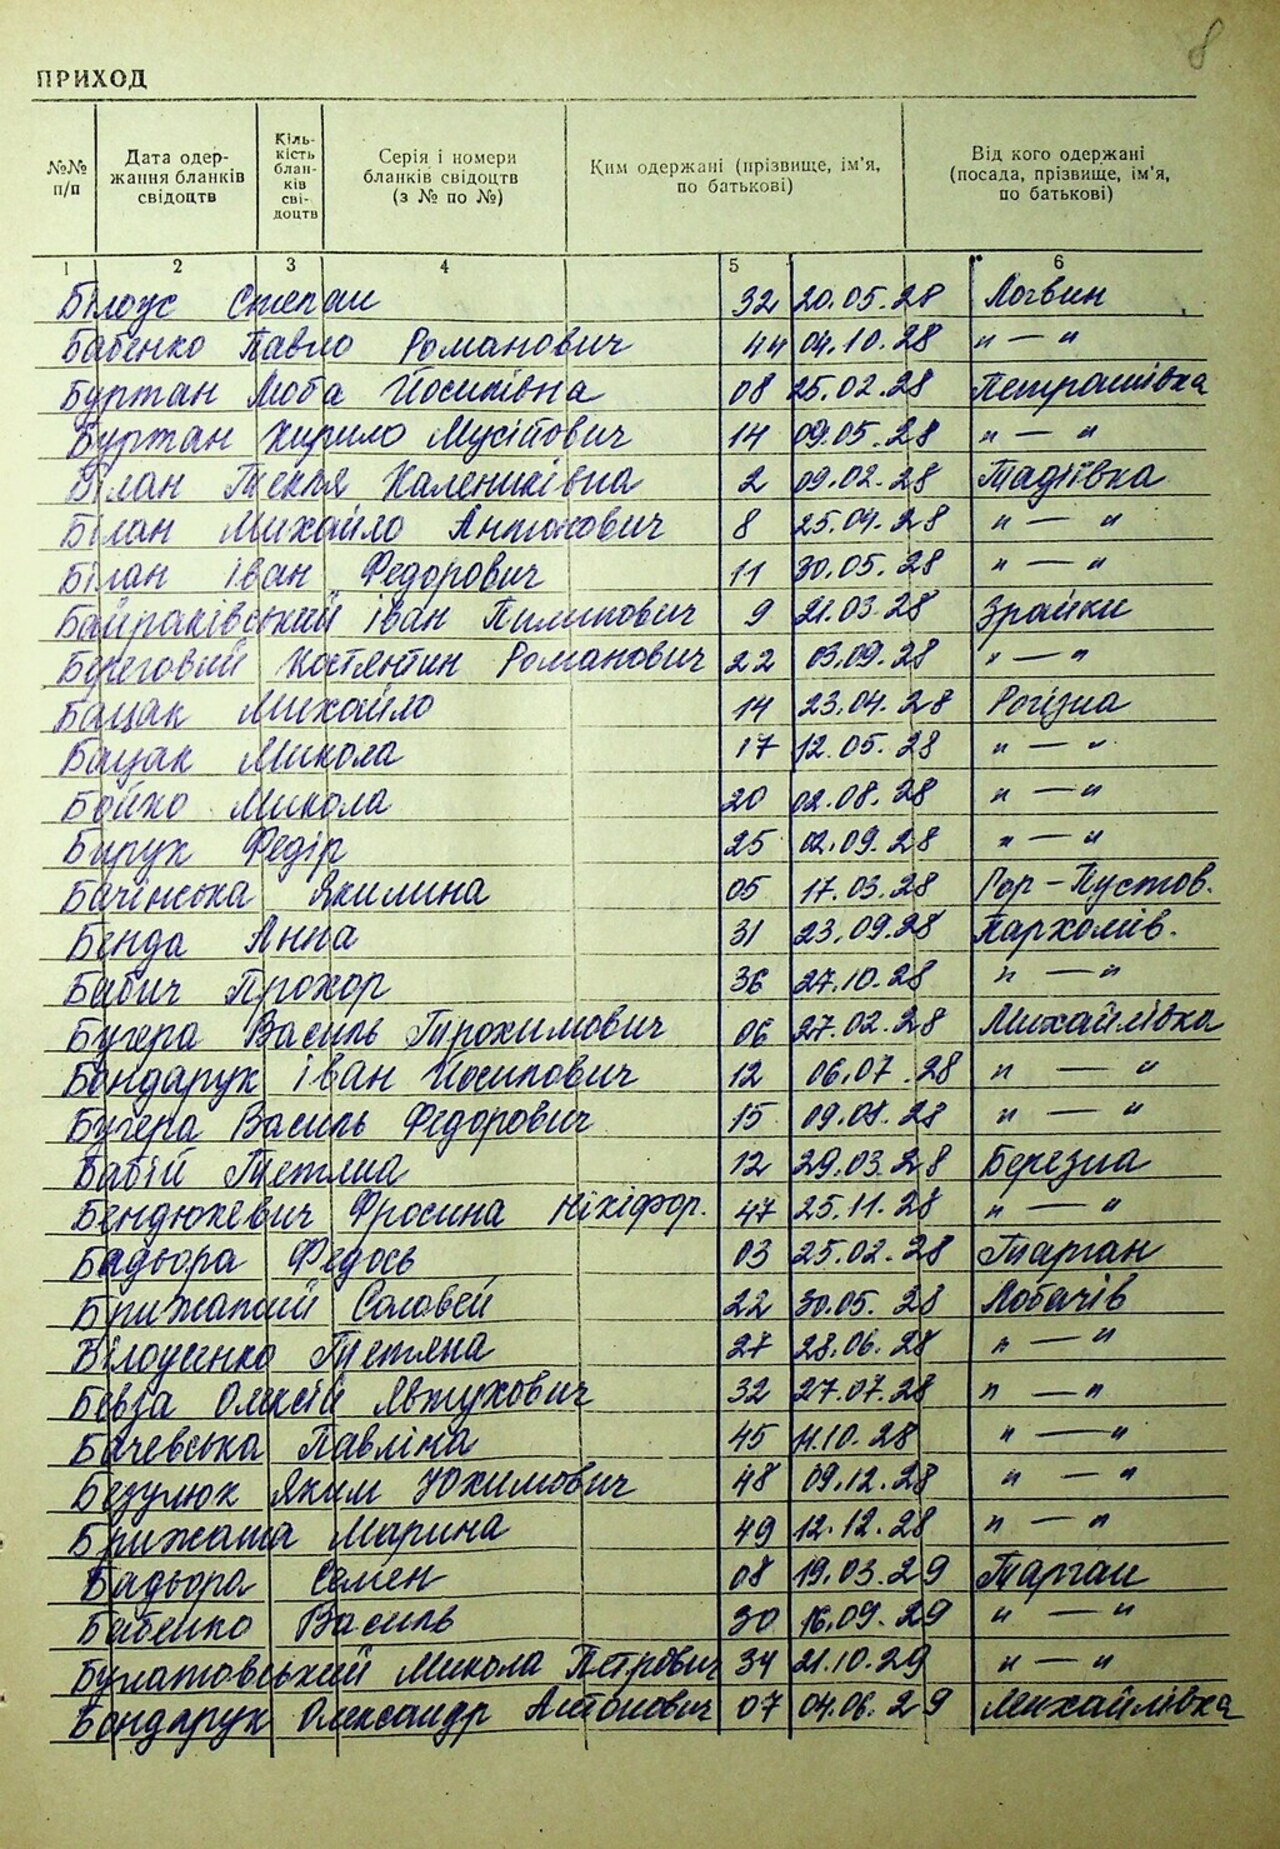 8
ПРИХОД
№№ п/п | Дата одер- жання бланків свідоцтв | Кіль- кість блан- ків сві- доцтв | Серія і номери бланків свідоцтв (з № по №) | Ким одержані (прізвище, ім'я, по батькові) | Від кого одержані (посада, прізвище, ім'я, по батькові)
1 2 3 4 5 6
Білоус Степан 32 20.05.28 Логвин
Бабенко Павло Романович 44 04.10.28 " — "
Буртан Люба Йосипівна 08 25.02.28 Петрашівка
Буртан Кирило Мусійович 14 09.05.28 " — "
Білан Текля Калениківна 2 09.02.28 Тадіївка
Білан Михайло Антонович 8 25.04.28 " — "
Білан Іван Федорович 11 30.05.28 " — "
Байраківський Іван Пилипович 9 21.03.28 Зрайки
Береговий Костянтин Романович 22 03.09.28 " — "
Бацак Михайло 14 23.04.28 Рогізна
Бацак Микола 17 12.05.28 " — "
Бойко Микола 20 02.08.28 " — "
Бирук Федір 25 02.09.28 " — "
Бачінська Якилина 05 17.03.28 Гор-Пустов.
Бенда Анна 31 23.09.28 Пархомів.
Бабич Прохор 36 27.10.28 " — "
Бугера Василь Трохимович 06 27.02.28 Михайлівка
Бондарук Іван Йосипович 12 06.07.28 " — "
Бугера Василь Федорович 15 09.08.28 " — "
Бабій Тетяна 12 29.03.28 Березна
Бендюкевич Фросина Нікіфор. 47 25.11.28 " — "
Бадьора Федось 03 25.02.28 Тарган
Брижатий Соловей 22 30.05.28 Лобачів
Білоусенко Тетяна 27 28.06.28 " — "
Бевза Олексій Явтухович 32 27.07.28 " — "
Бачевська Павліна 45 11.10.28 " — "
Безулюк Яким Юхимович 48 09.12.28 " — "
Брижата Марина 49 12.12.28 " — "
Бадьора Семен 08 19.03.29 Тарган
Бабенко Василь 30 16.09.29 " — "
Булатовський Микола Петрович 34 21.10.29 " — "
Бондарук Олександр Антонович 07 04.06.29 Михайлівка